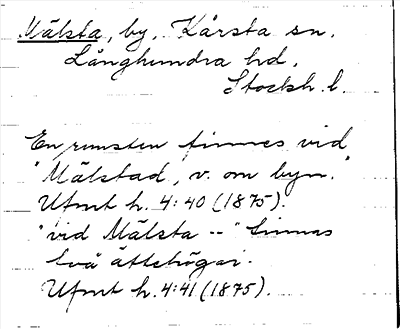 Mälsta, by, Kårsta sn.
Långhundra hd.
Stockh. l.
En runsten finnes vid
"Mälstad, v. om byn."
Ufmt h. 4:40 (1875).
"vid Mälsta -- " finnas
två ättehögar.
Ufmt h. 4:41 (1875).